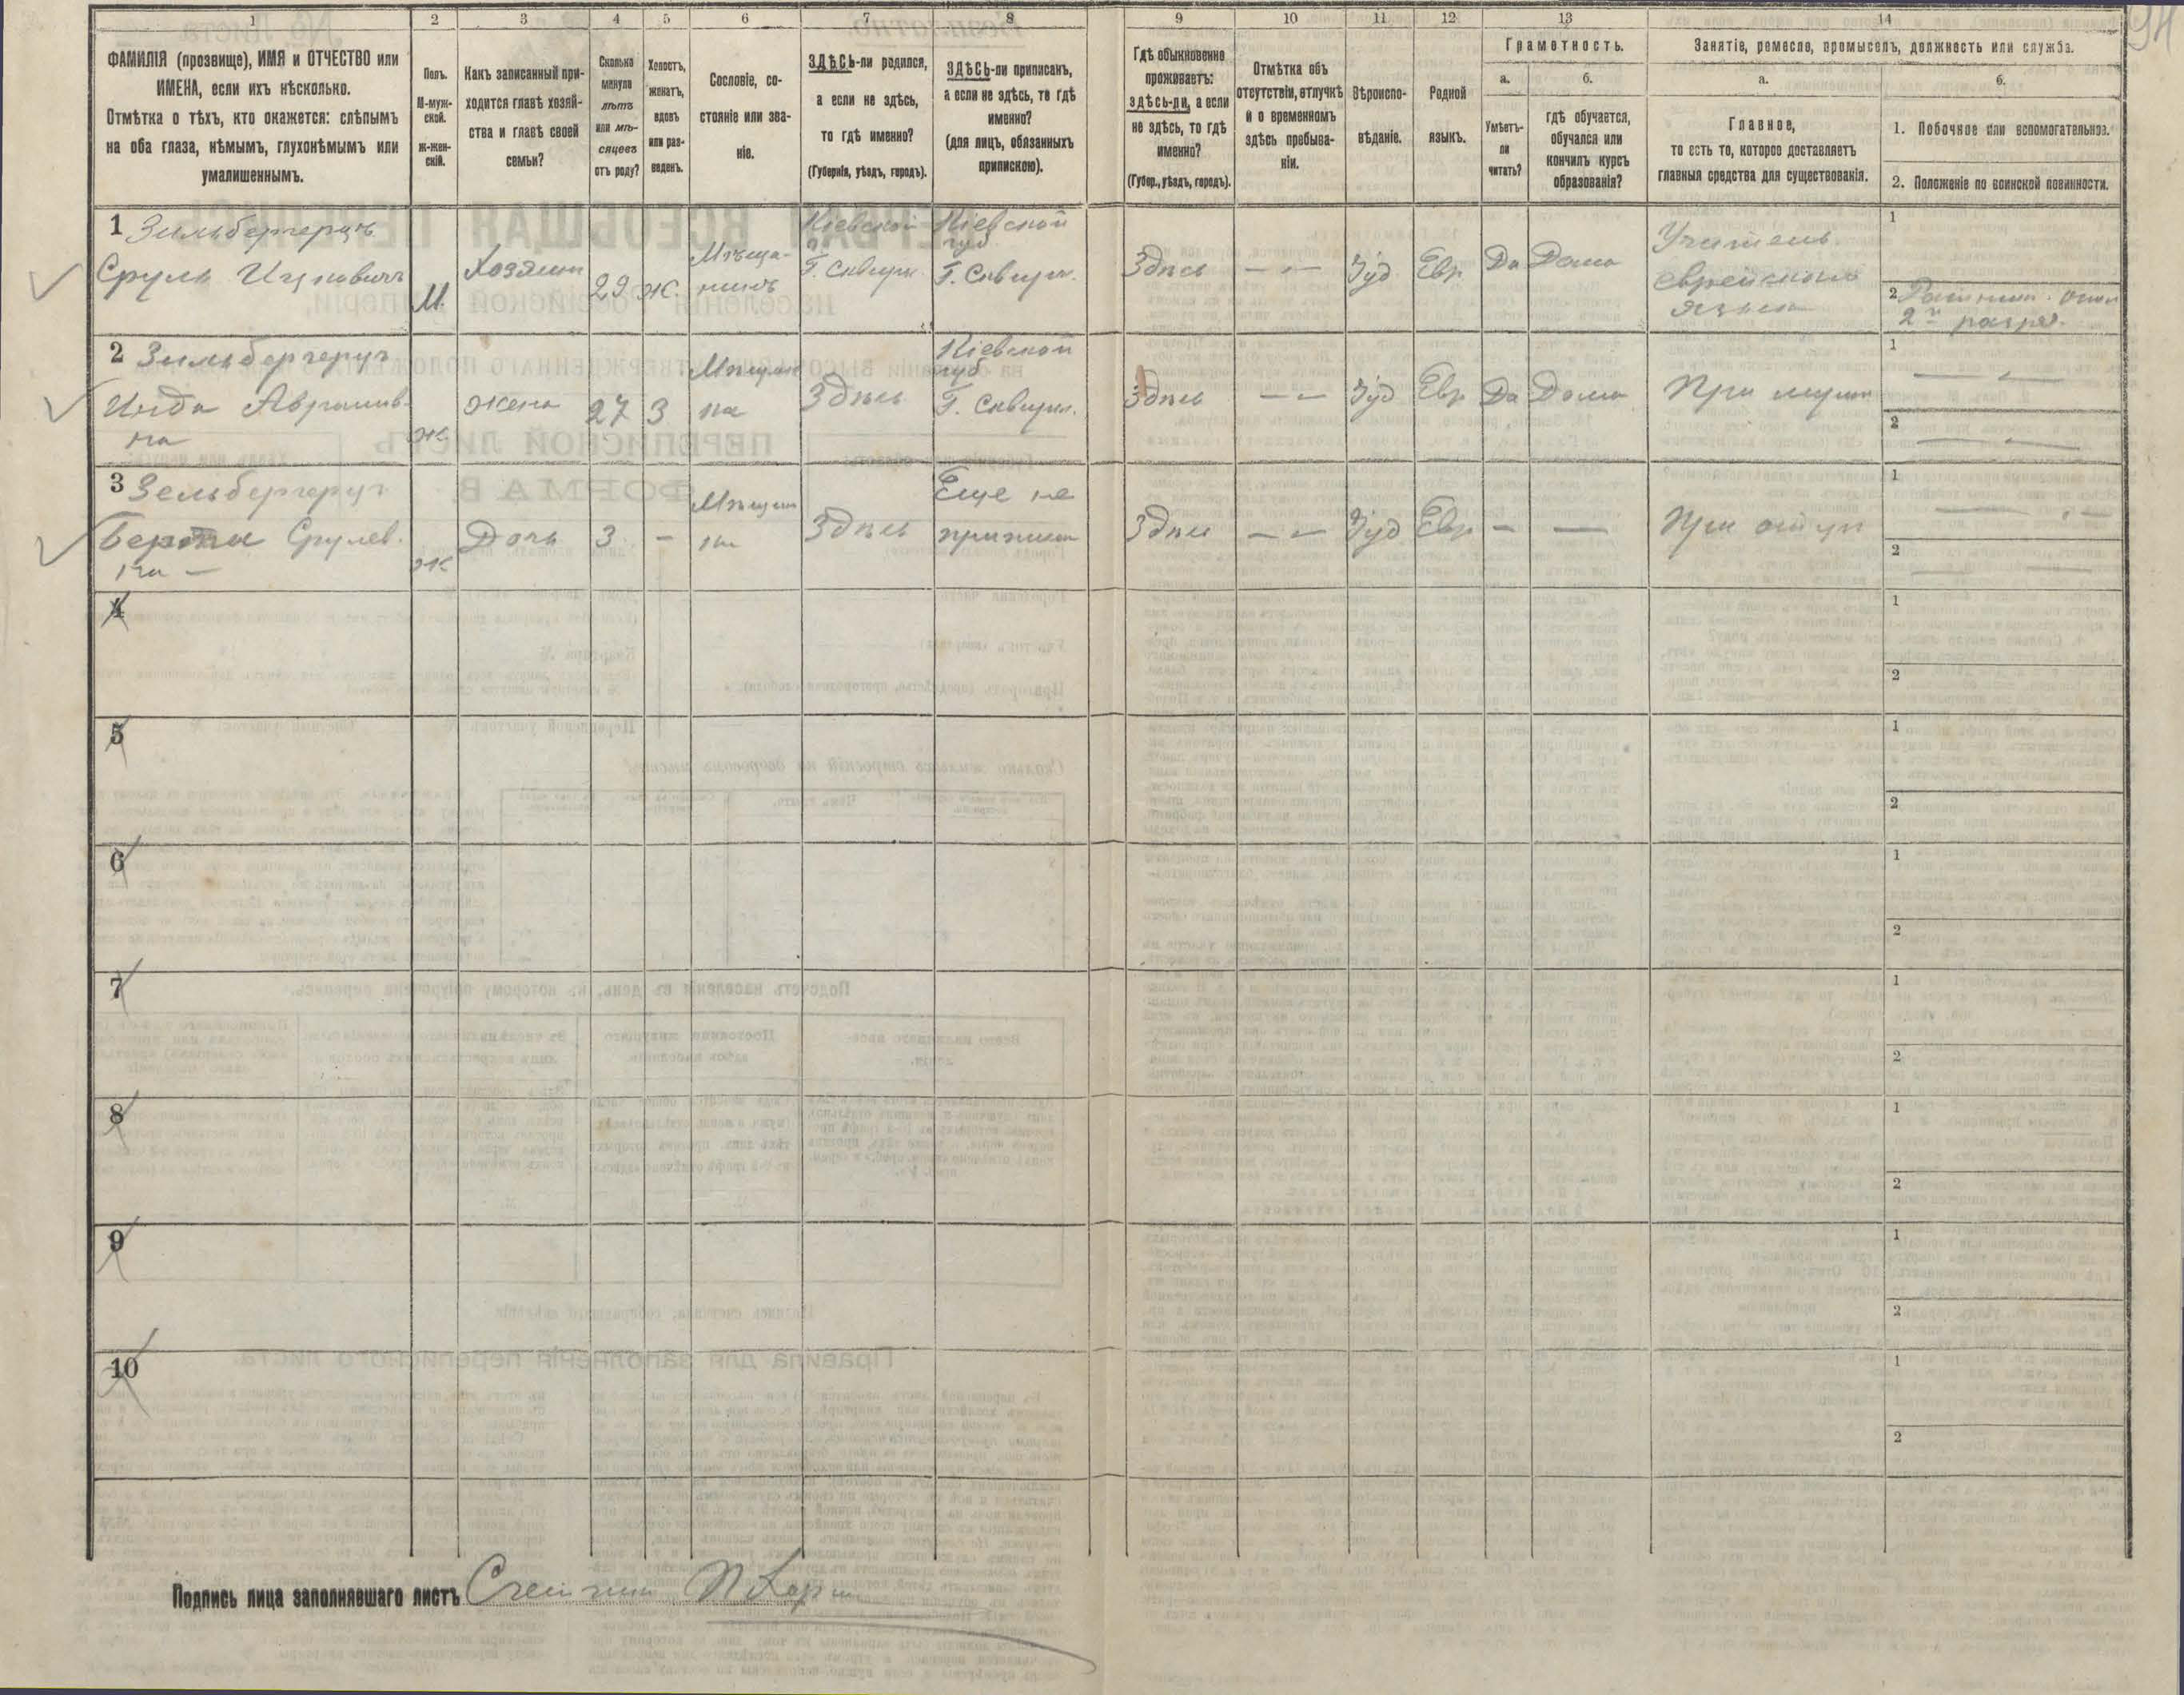 94
1 2 3 4 5 6 7 8 9 10 11 12 13 14
ФАМИЛІЯ (прозвище), ИМЯ и ОТЧЕСТВО или
ИМЕНА, если ихъ нѣсколько.
Отмѣтка о тѣхъ, кто окажется: слѣпымъ
на оба глаза, нѣмымъ, глухонѣмымъ или
умалишеннымъ.
Полъ.
М-муж-
ской.
ж-жен-
скій.
Какъ записанный при-
ходится главѣ хозяй-
ства и главѣ своей
семьи?
Сколько
минуло
лѣтъ
или мѣ-
сяцевъ
отъ роду?
Холостъ,
женатъ,
вдовъ
или раз-
веденъ.
Сословіе, со-
стояніе или зва-
ніе.
ЗДѢСЬ-ли родился,
а если не здѣсь,
то гдѣ именно?
(Губернія, уѣздъ, городъ).
ЗДѢСЬ-ли приписанъ,
а если не здѣсь, то гдѣ
именно?
(для лицъ, обязанныхъ
припискою).
Гдѣ обыкновенно
проживаетъ:
здѣсь-ли, а если
не здѣсь, то гдѣ
именно?
(Губер., уѣздъ, городъ).
Отмѣтка объ
отсутствіи, отлучкѣ
и о временномъ
здѣсь пребыва-
ніи.
Вѣроиспо-
вѣданіе.
Родной
языкъ.
Грамотность.
а.
Умѣетъ-
ли
читать?
б.
гдѣ обучается,
обучался или
кончилъ курсъ
образованія?
Занятіе, ремесло, промыселъ, должность или служба.
а.
Главное,
то есть то, которое доставляетъ
главныя средства для существованія.
б.
1. Побочное или вспомогательное.
2. Положеніе по воинской повинности.
1 Зильберерцъ
Сруль Ицковичъ
М
Хозяин
29
Ж.
Мѣща-
нинъ
Кіевской
г.
Г. Сквира
Кіевской
губ
Г. Сквиры.
Здѣсь
Іуд
Евр
Да
Дома
Учитель
еврейскаго
языка
1
2
2го разря.
2 Зильберерцъ
Инда Аврамов-
на
ж.
жена
27
З
Мѣщан
ка
Здѣсь
Кіевской
губ
Г. Сквиры.
Здѣсь
Іуд
Евр
Да
Дома
При мужѣ
1
2
3 Зельберерцъ
Берта Срулев-
на —
ж
Дочь
3
-
Мѣщан
ка
Здѣсь
Еще не
приписан
Здѣсь
Іуд
Евр
—
—
При отцѣ
1
2
4
1
2
5
1
2
6
1
2
7
1
2
8
1
2
9
1
2
10
1
2
Подпись лица заполнявшаго листъ Счетчик